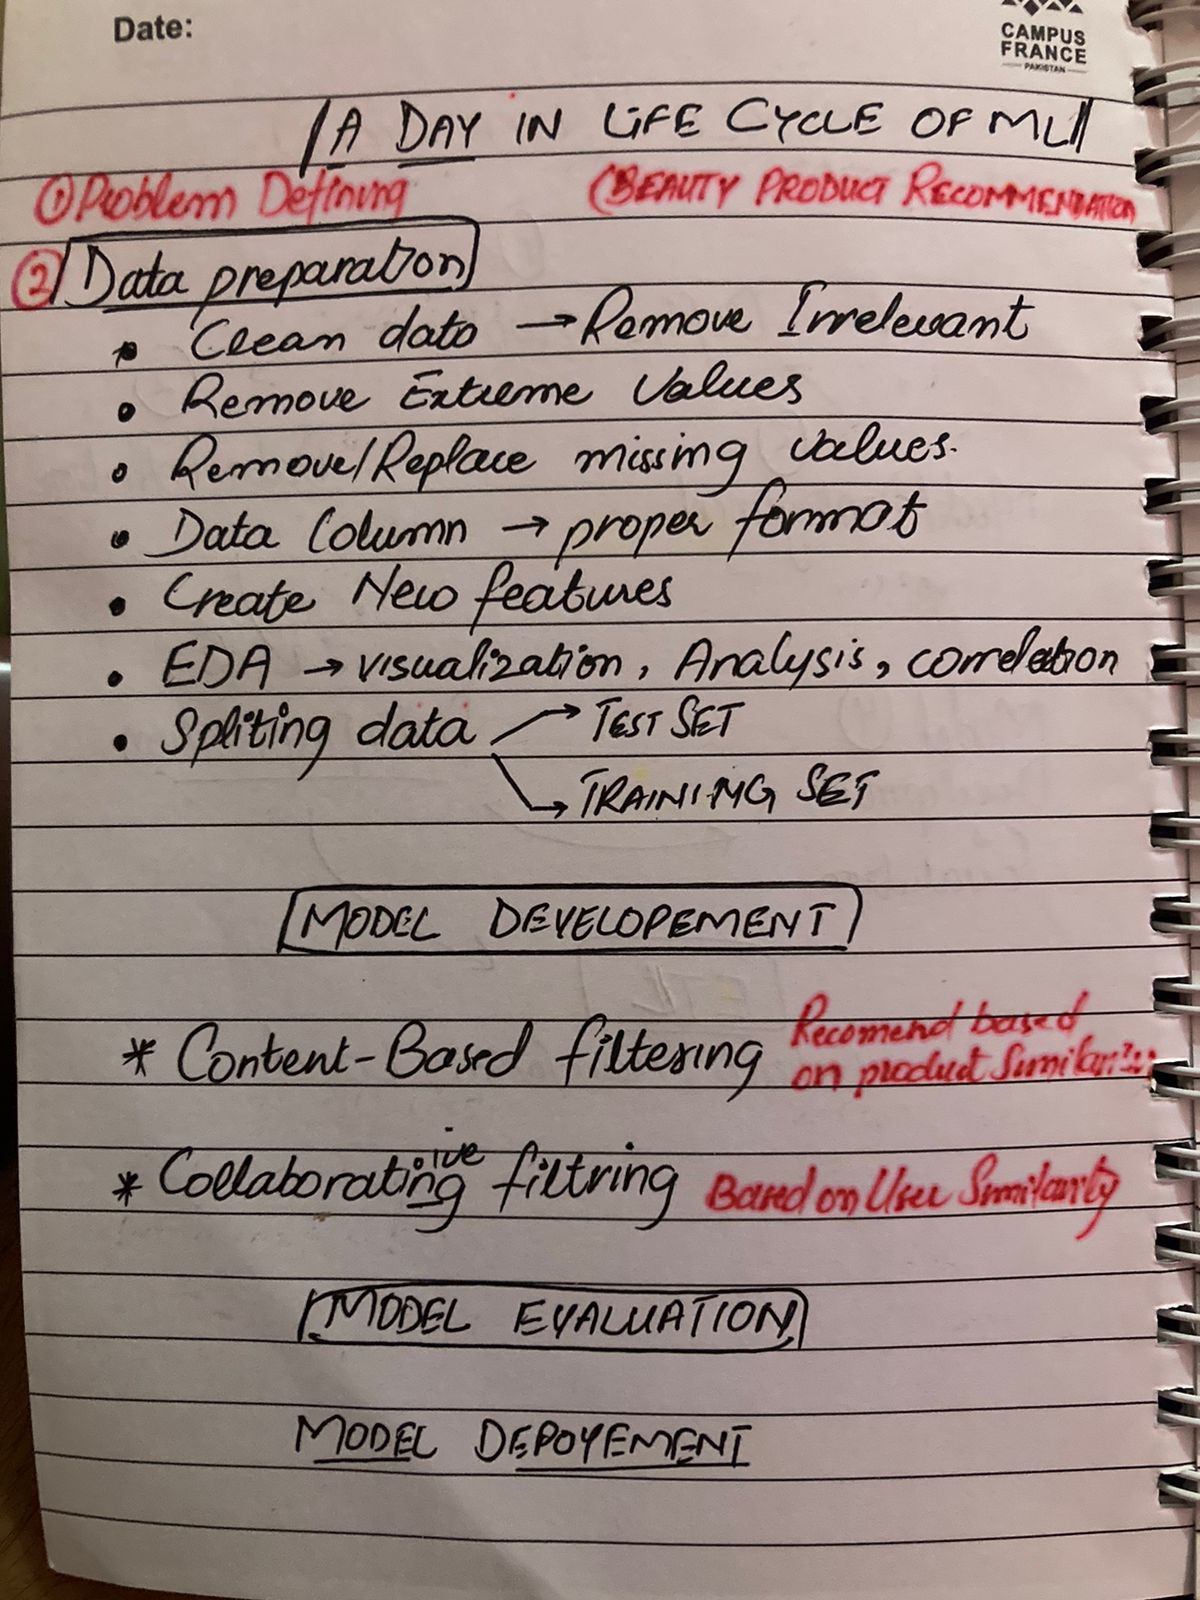 Date:
CAMPUS
FRANCE
PAKISTAN
A DAY IN LIFE CYCLE OF ML
① Problem Defining (BEAUTY PRODUCT RECOMMENDATION
② Data preparation
• Clean data → Remove Irrelevant
• Remove Extreme Values
• Remove/Replace missing values.
• Data Column → proper format
• Create New features
• EDA → visualization, Analysis, correlation
• Spliting data → TEST SET
→ TRAINING SET
MODEL DEVELOPEMENT
* Content-Based filtering Recomend based
on product Similarity
* Collaborating ive filtring Based on User Similarity
MODEL EVALUATION
MODEL DEPOYEMENT